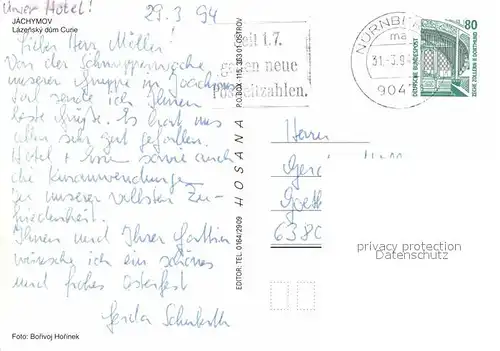 Unser Hotel!
29.3.94
JÁCHYMOV
Lázeňský dům Curie
Lieber Herr Müller!
Von der Schnupperwoche
unserer Gruppe in Joachims-
tal sende ich Ihnen
beste Grüße. Es hat uns
allen sehr gut gefallen.
Hotel + sowie auch
die Kuranwendungen
zu unserer vollsten Zu-
friedenheit.
Ihnen und Ihrer Gattin
wünsche ich ein schönes
und frohes Osterfest
Gerda
Foto: Bořivoj Hořínek
EDITOR: TEL. 0164/2909 HOSANA P.O. BOX 115, 363 01 OSTROV
seit 1.7.
gelten neue
Postleitzahlen.
NÜRNBERG
ma
31.-3.9
904
80
DEUTSCHE BUNDESPOST
ZECHE ZOLLERN II DORTMUND
Herrn
Goeth
6380
privacy protection
Datenschutz